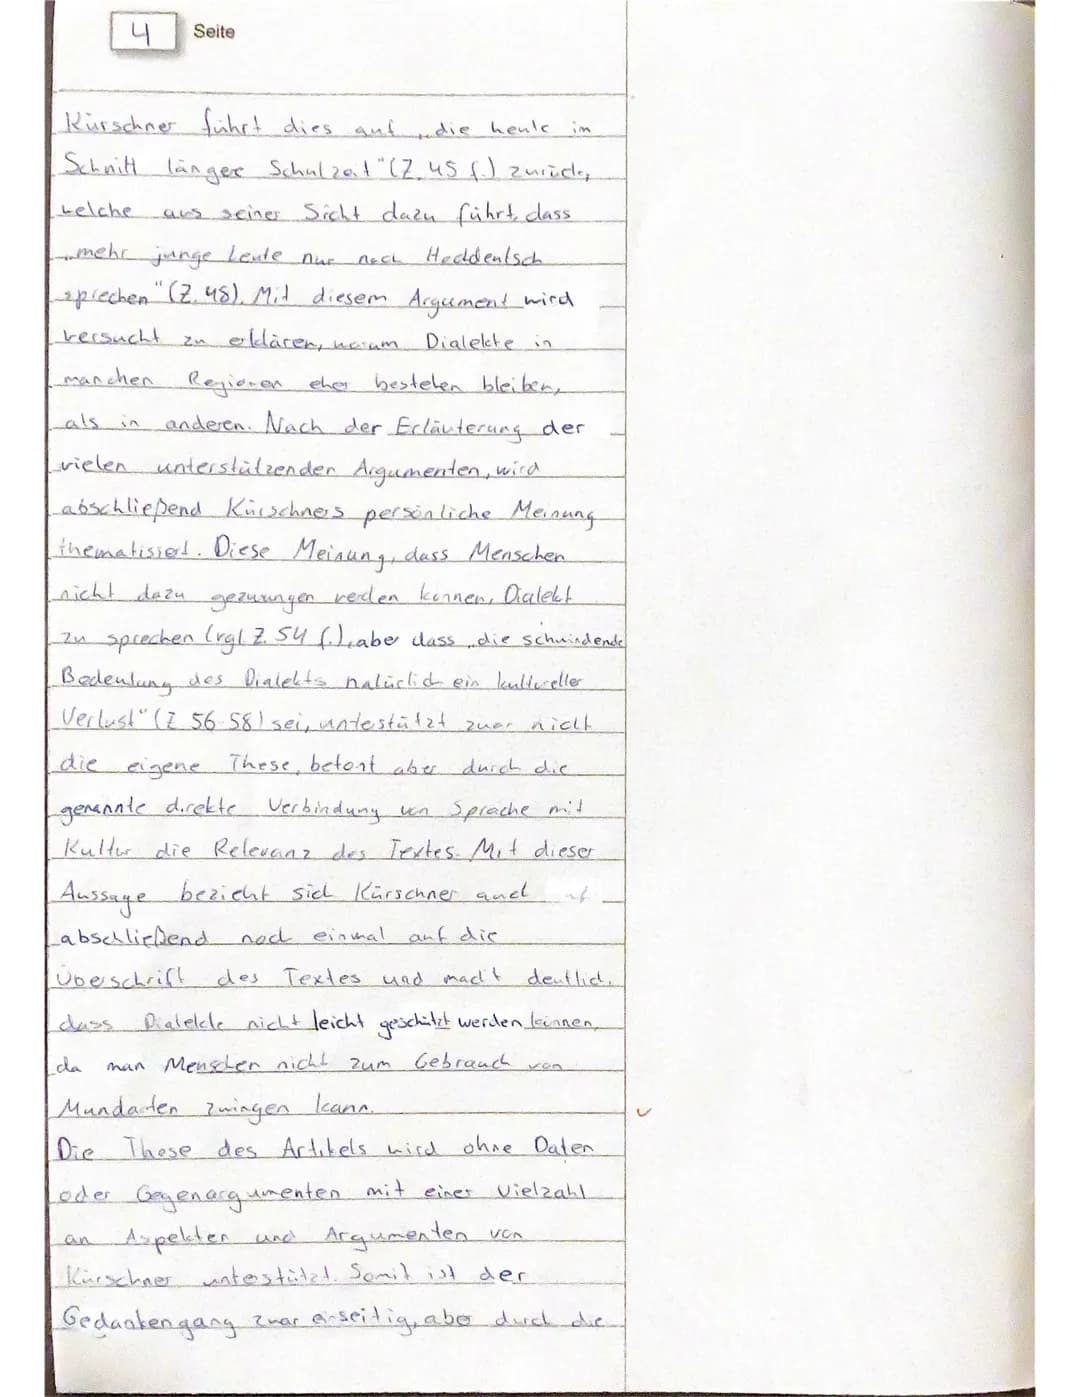 4 Seite
Kürschner führt dies auf „die heute im
Schnitt längere Schulzeit" (Z. 45 f.) zurück,
welche aus seiner Sicht dazu führt, dass
„mehr junge Leute nur noch Hochdeutsch
sprechen" (Z. 48). Mit diesem Argument wird
versucht zu erklären, warum Dialekte in
manchen Regionen eher bestehen bleiben,
als in anderen. Nach der Erläuterung der
vielen unterstützenden Argumenten, wird
abschließend Kürschners persönliche Meinung
thematisiert. Diese Meinung, dass Menschen
nicht dazu gezwungen werden können, Dialekt
zu sprechen (vgl. Z. 54 f.), aber dass „die schwindende
Bedeutung des Dialekts natürlich ein kultureller
Verlust" (Z 56-58) sei, unterstützt zwar nicht
die eigene These, betont aber durch die
genannte direkte Verbindung von Sprache mit
Kultur die Relevanz des Textes. Mit dieser
Aussage bezieht sich Kürschner auch
abschließend noch einmal auf die
Überschrift des Textes und macht deutlich,
dass Dialekte nicht leicht geschützt werden können,
da man Menschen nicht zum Gebrauch von
Mundarten zwingen kann.
Die These des Artikels wird ohne Daten
oder Gegenargumenten mit einer Vielzahl
an Aspekten und Argumenten von
Kürschner unterstützt. Somit ist der
Gedankengang zwar einseitig, aber durch die